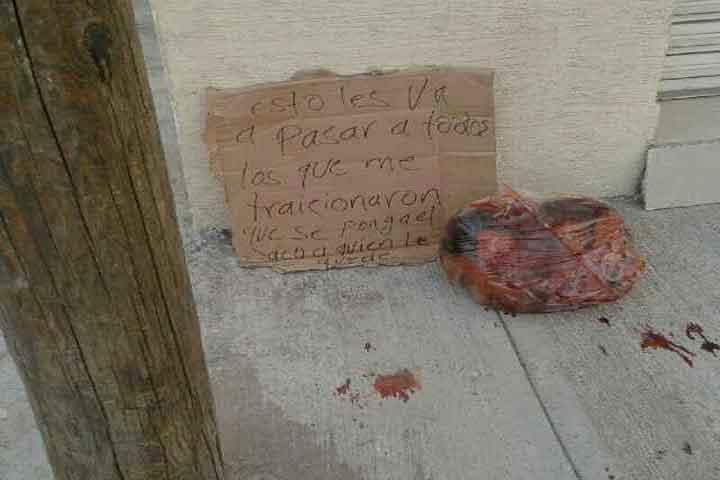 esto les va
a pasar a todos
los que me
traicionaron
que se ponga el
saco a quien le
quede